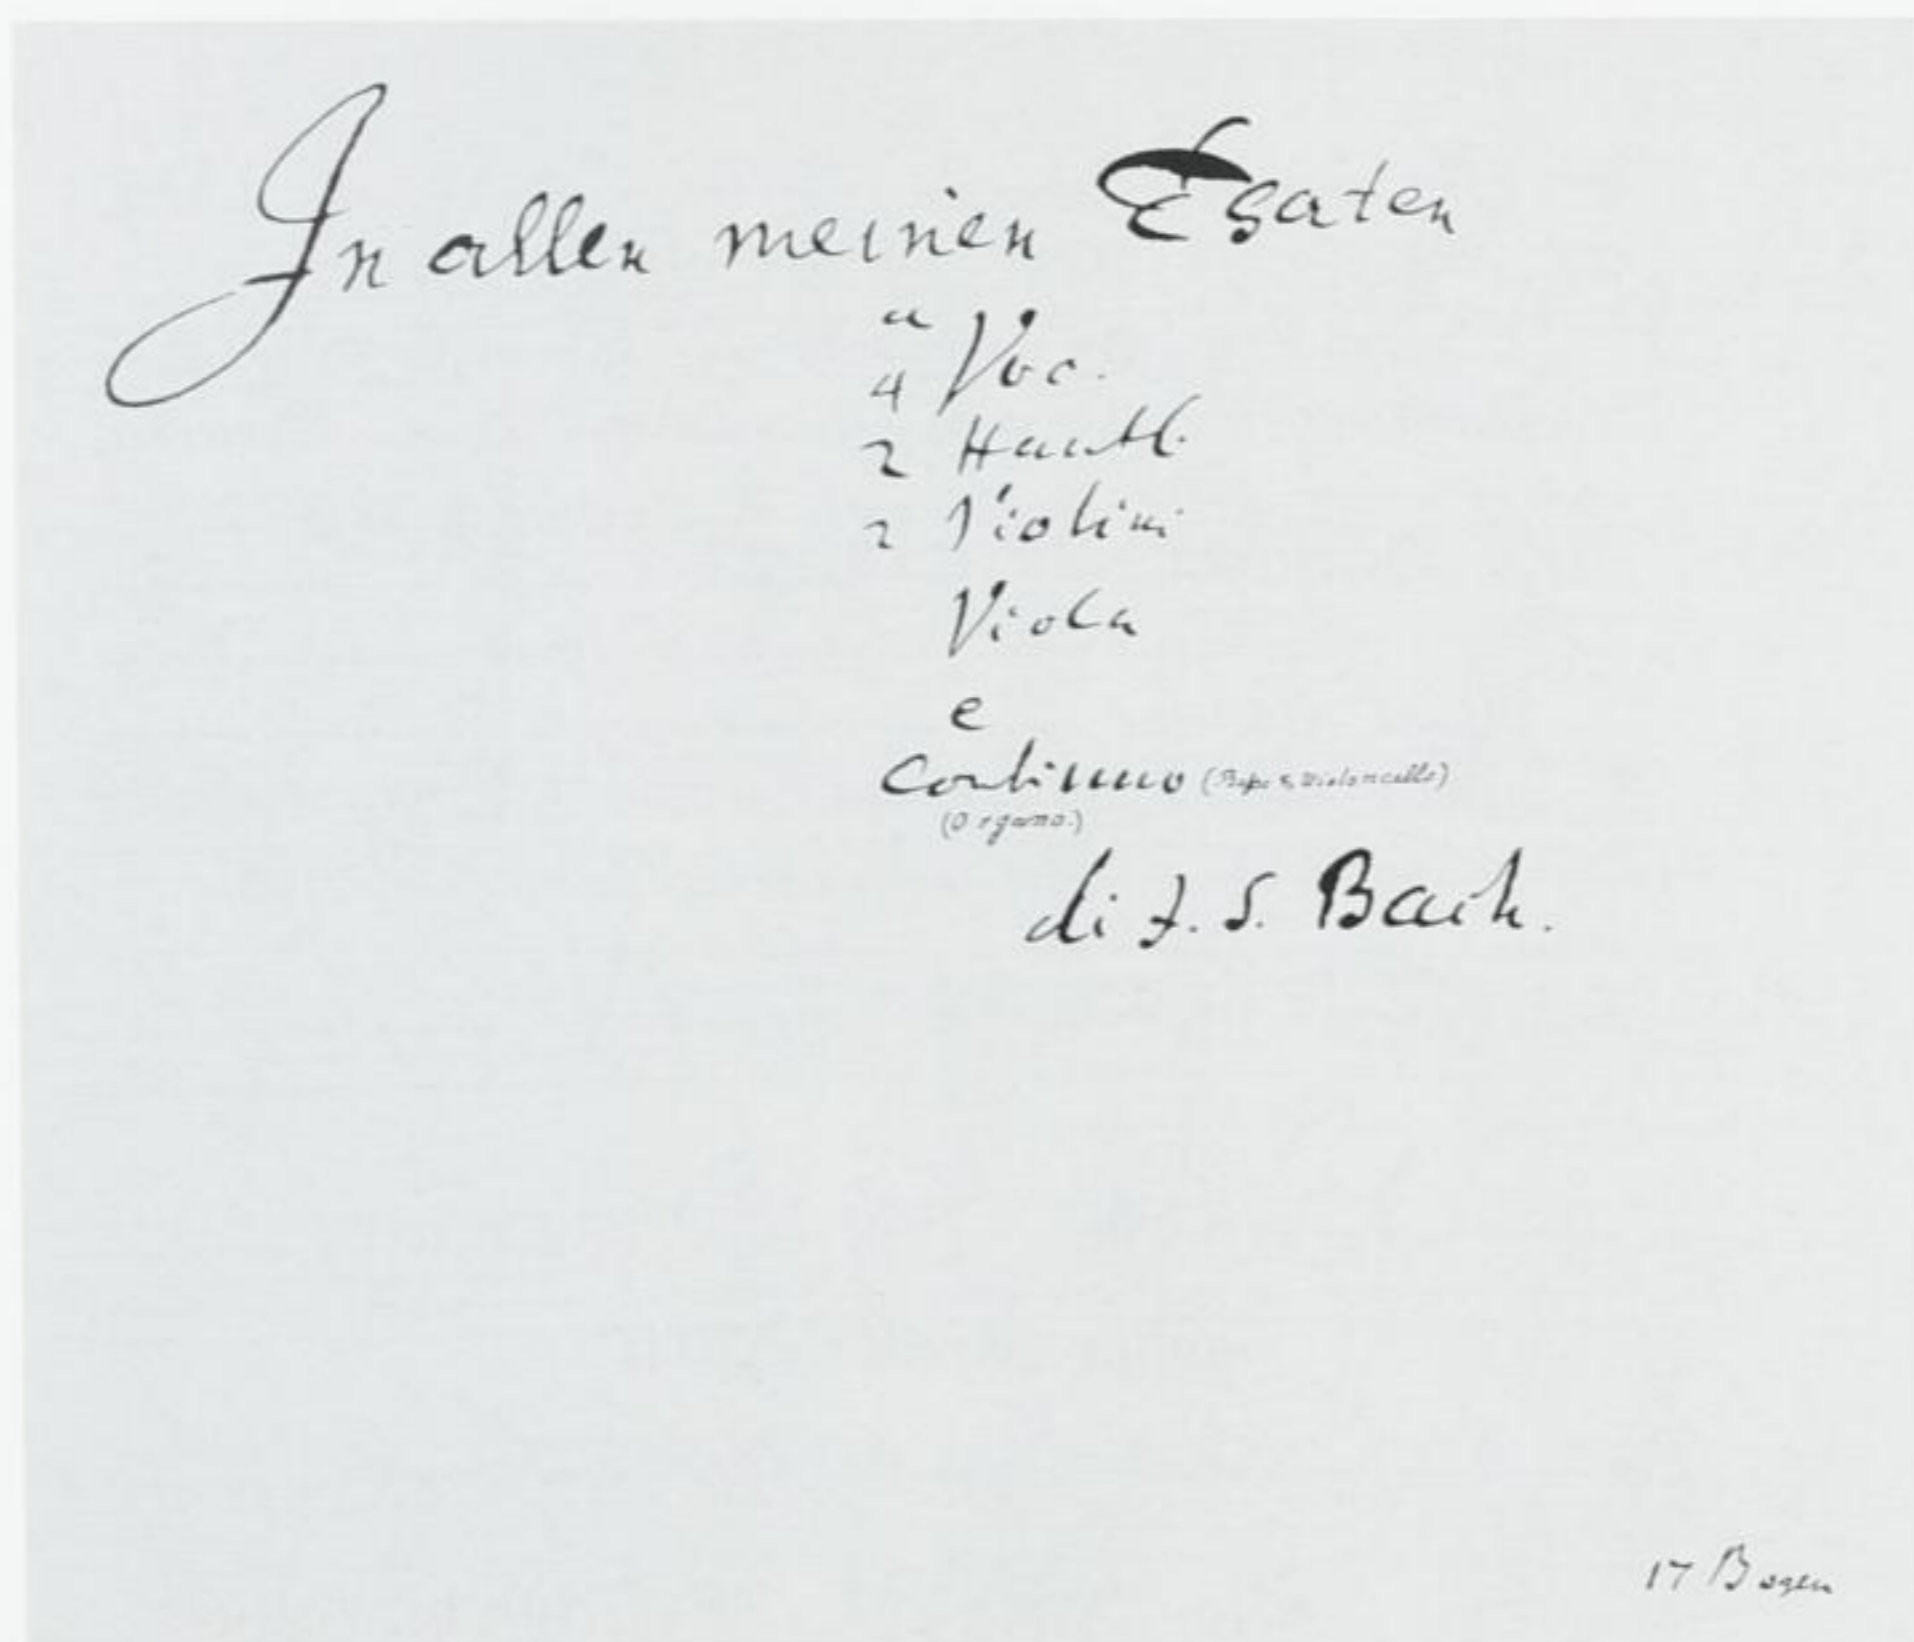 In allen meinen Thaten
a
4 Voc.
2 Hautb.
2 Violini
Viola
e
Continuo (Basso & Violoncello)
(Organo.)
di J. S. Bach.
17 Bogen